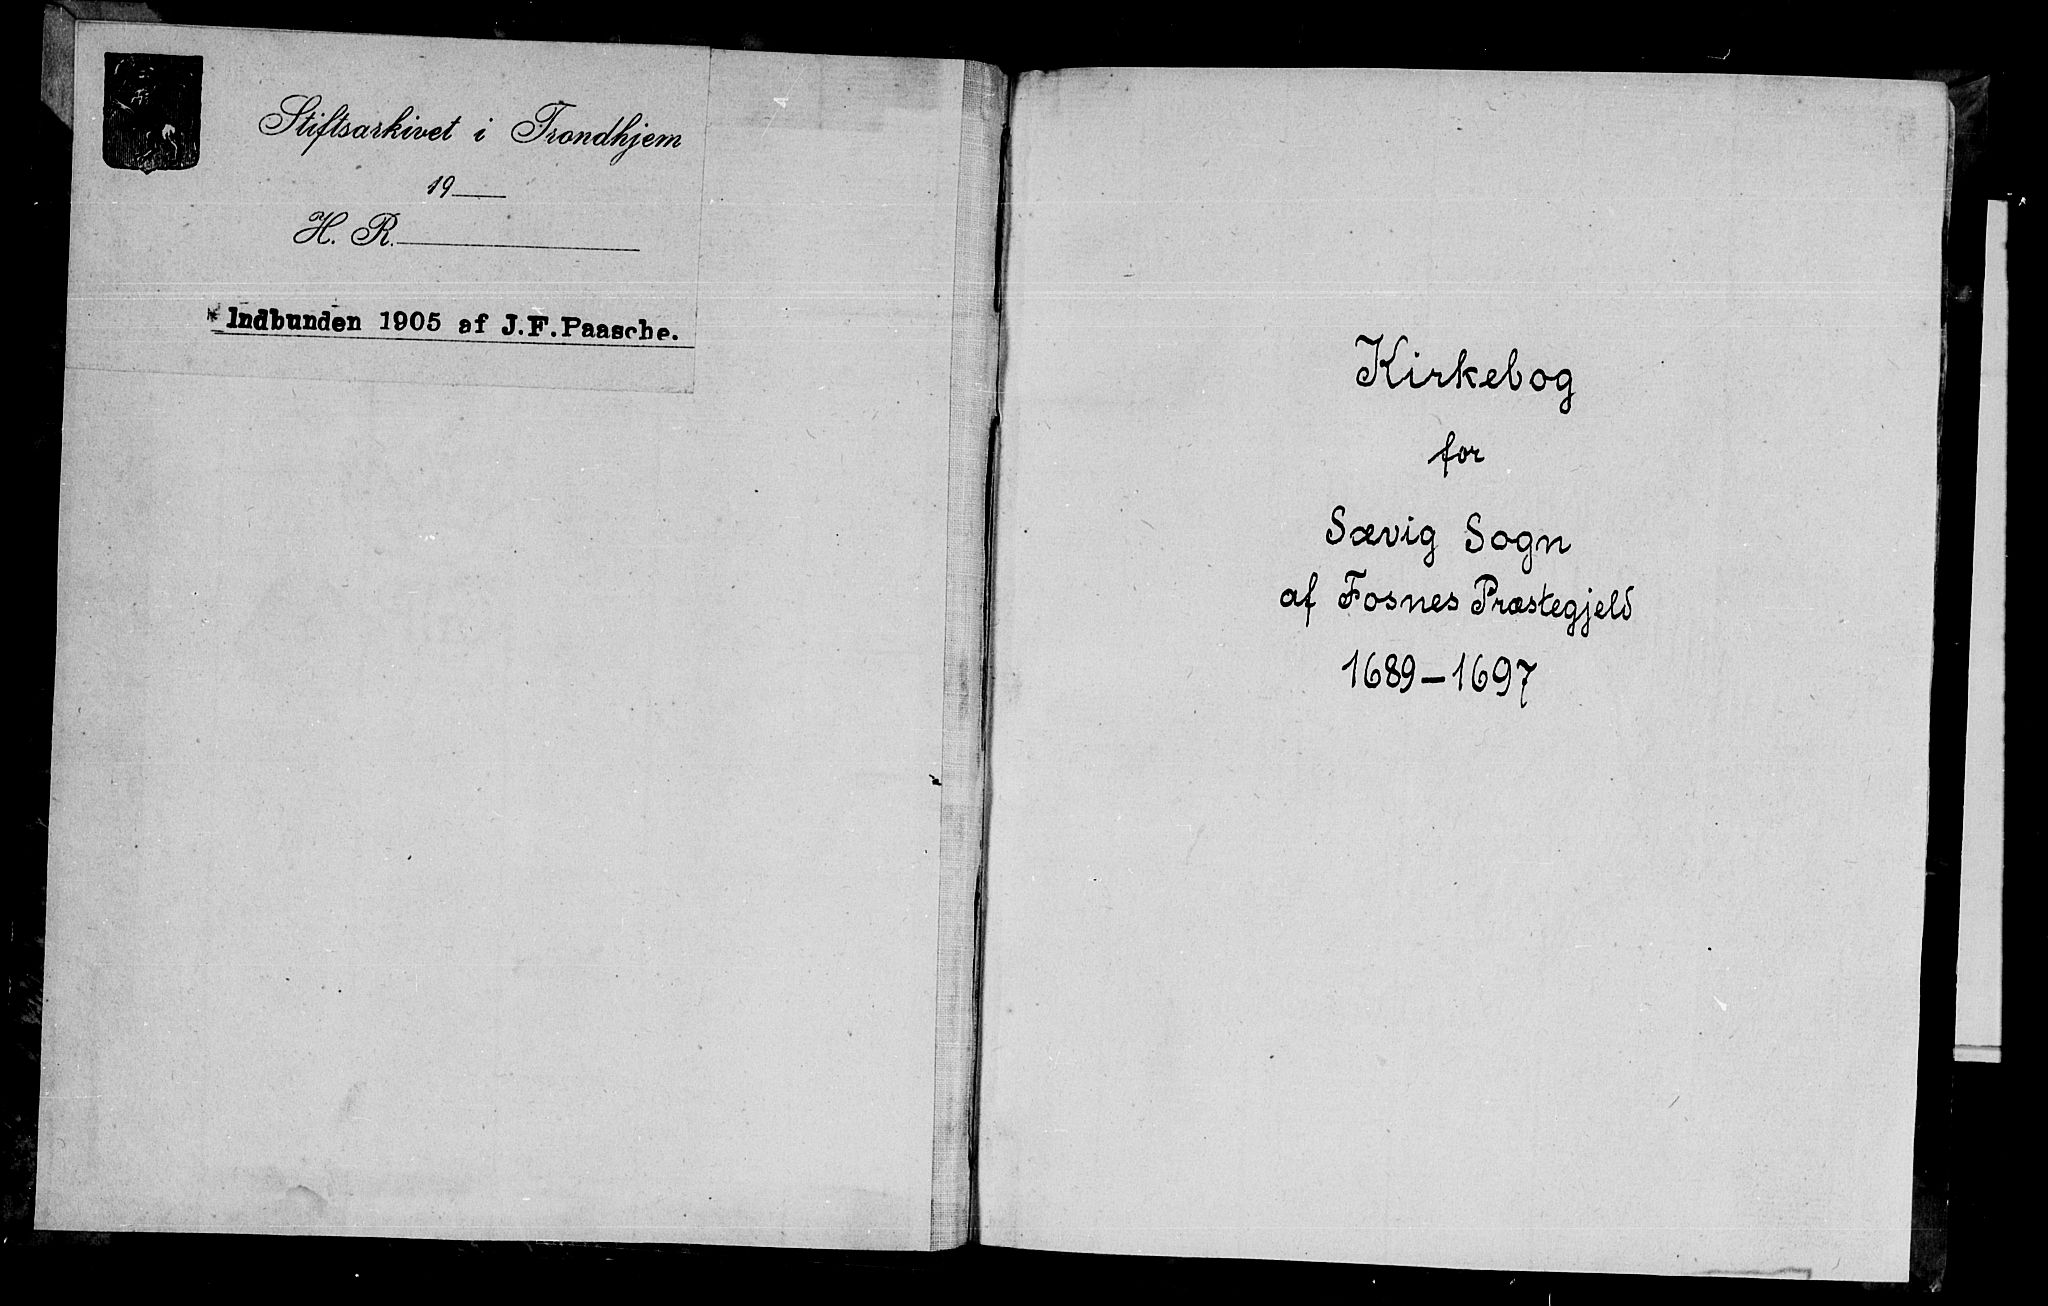 Stiftsarkivet i Trondhjem
19
H. R.
Indbunden 1905 af J.F.Paasche.
Kirkebog
for
Sævig Sogn
af Fosnes Præstegjeld
1689-1697